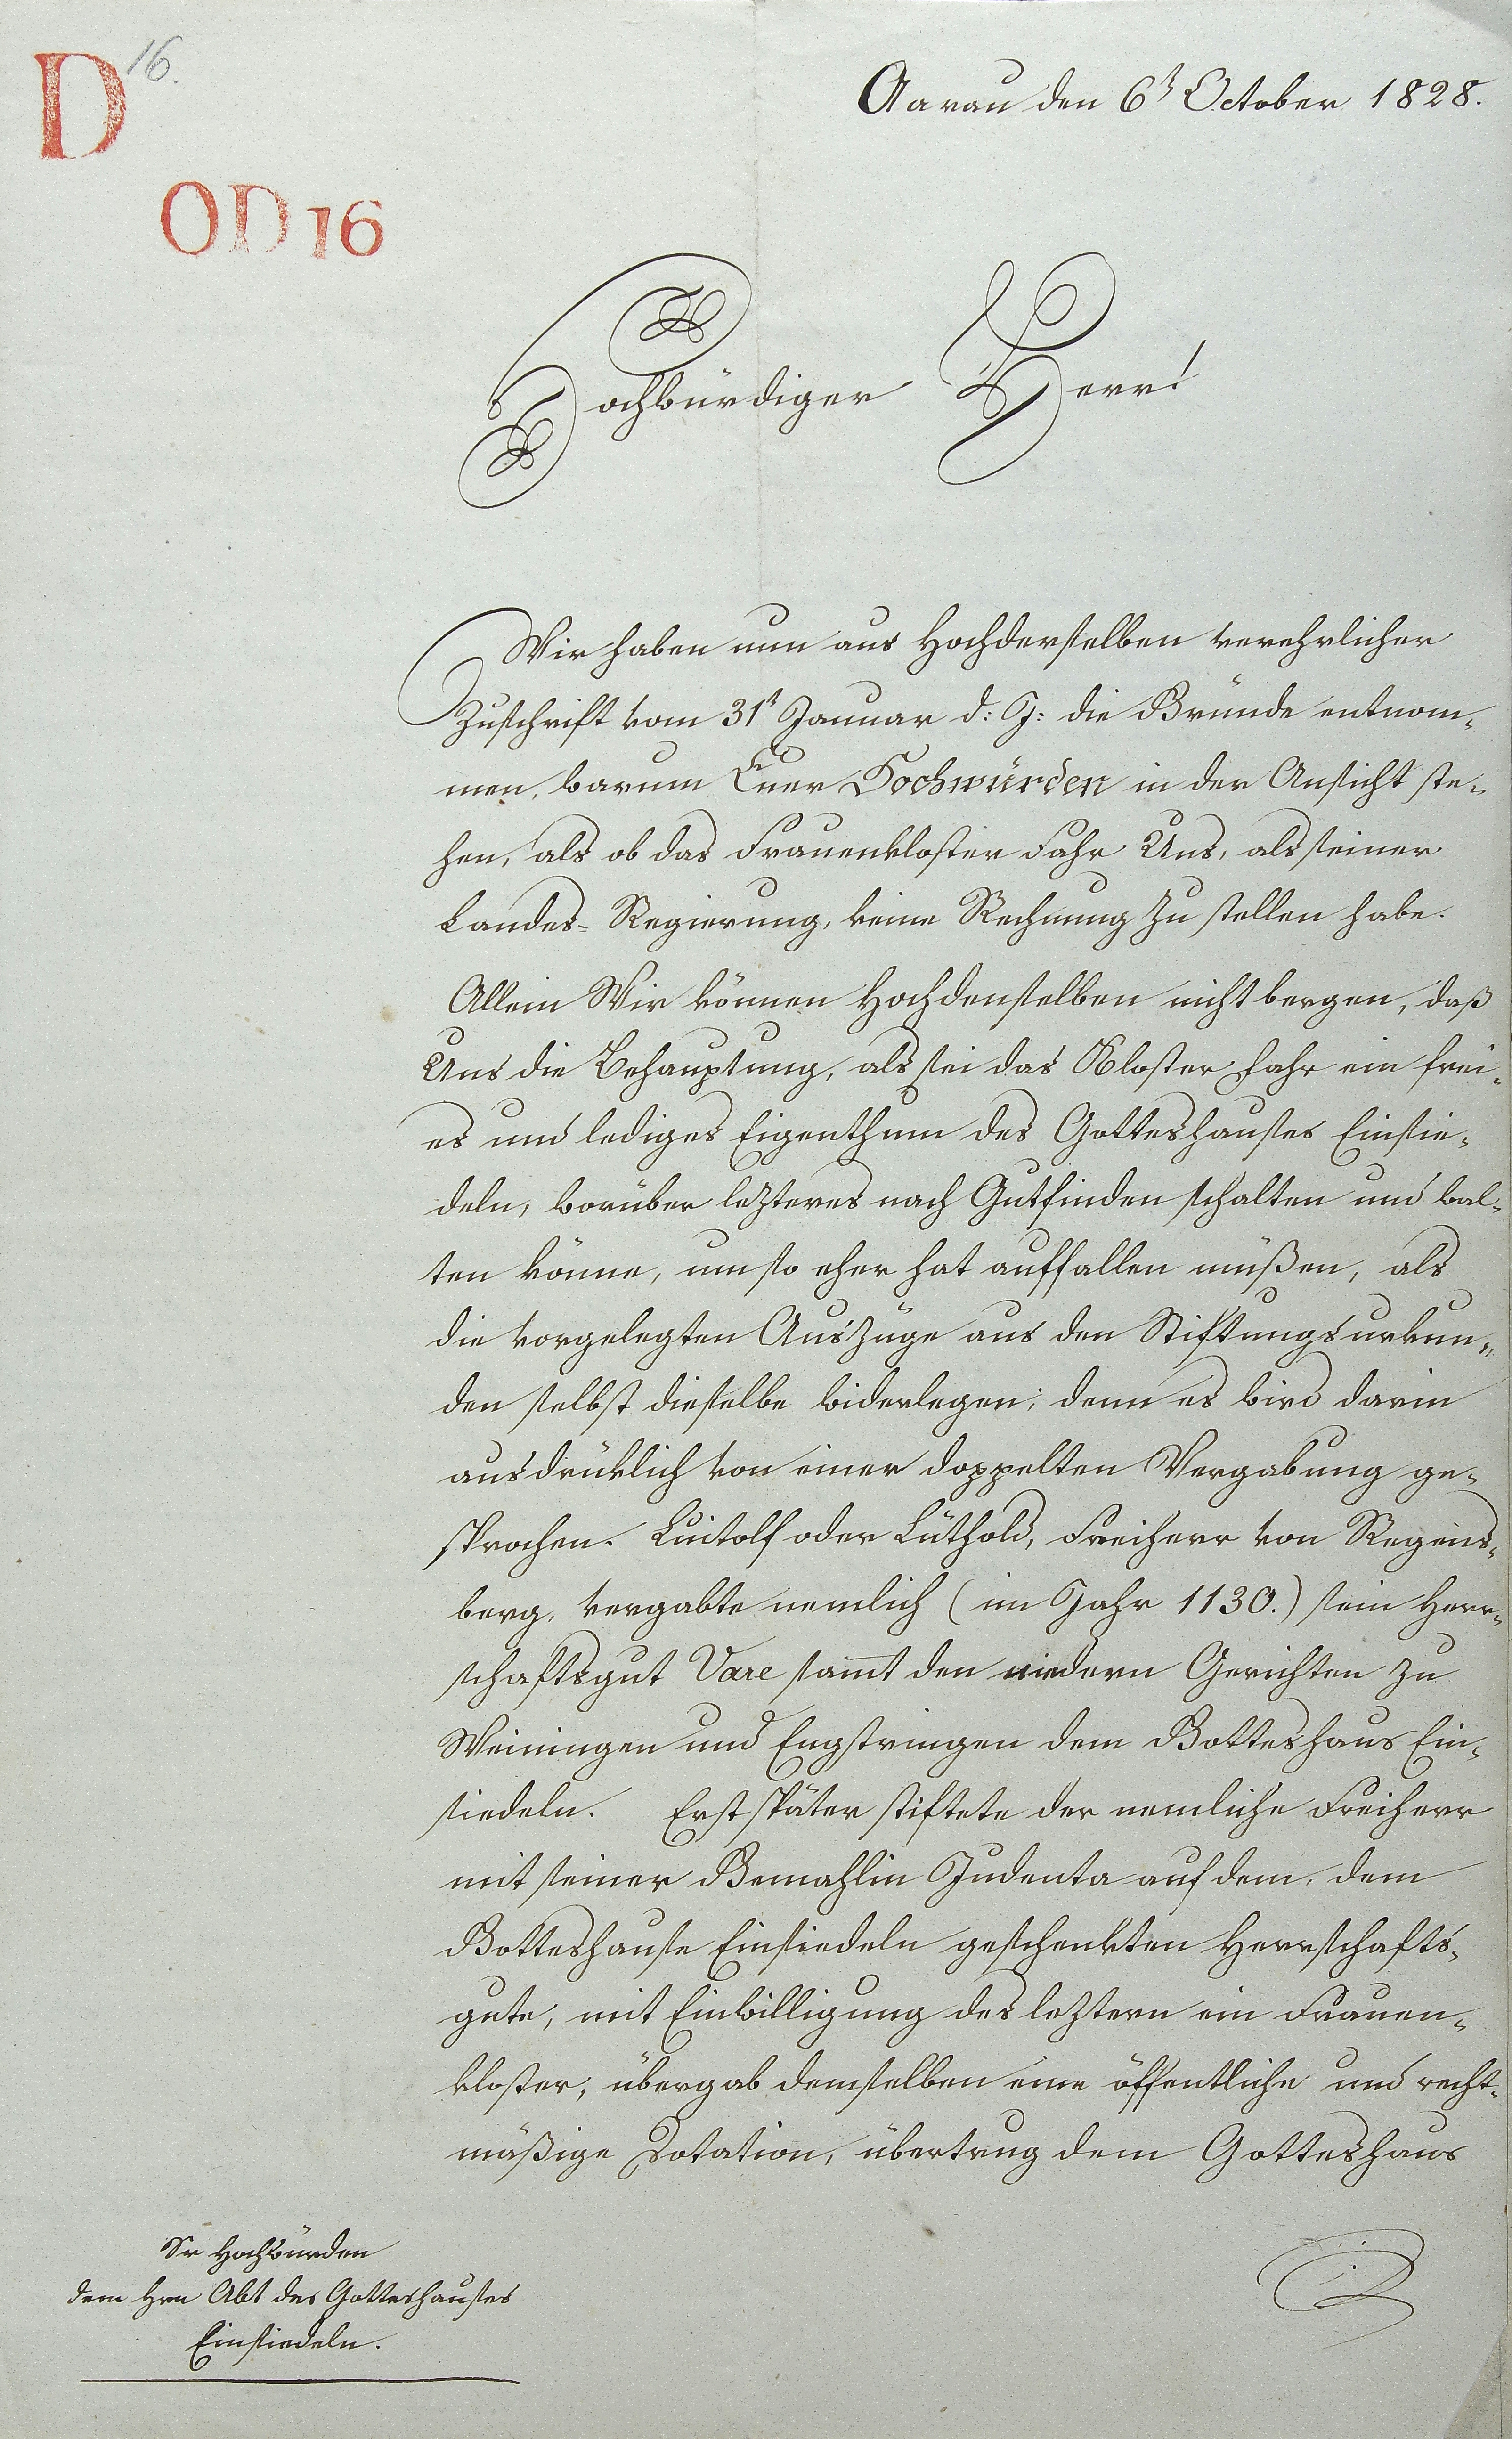 D 16.
OD 16
Aarau den 6t October 1828.
Hochwürdiger Herr!
Wir haben nun aus Hochderselben verehrlicher
Zuschrift vom 31t Januar d: J: die Gründe entnom-
men, warum Euer Hochwürden in der Ansicht ste-
hen, als ob das Frauenkloster Fahr Uns, als seiner
Landes-Regierung, keine Rechnung zu stellen habe.
Allein Wir können Hochdenselben nicht bergen, daß
Uns die Behauptung, als sei das Kloster Fahr ein frei-
es und lediges Eigenthum des Gotteshauses Einsie-
deln, worüber lezteres nach Gutfinden schalten und wal-
ten könne, um so eher hat auffallen müßen, als
die vorgelegten Auszüge aus den Stiftungsurkun-
den selbst dieselbe widerlegen; denn es wird darin
ausdrüklich von einer doppelten Vergabung ge-
sprochen. Luitolf oder Lüthold, Freiherr von Regens-
berg, vergabte nemlich (im Jahr 1130.) sein Herr-
schaftsgut Vare sam̄t den niedern Gerichten zu
Weiningen und Engstringen dem Gotteshaus Ein-
siedeln. Erst später stiftete der nemliche Freiherr
mit seiner Gemahlin Judenta auf dem, dem
Gotteshause Einsiedeln geschenkten Herrschafts-
gute, mit Einwilligung des leztern ein Frauen-
kloster, übergab demselben eine öffentliche und recht-
mäßige Dotation, übertrug dem Gotteshaus
Sr Hochwürden
dem Hrn Abt des Gotteshauses
Einsiedeln.